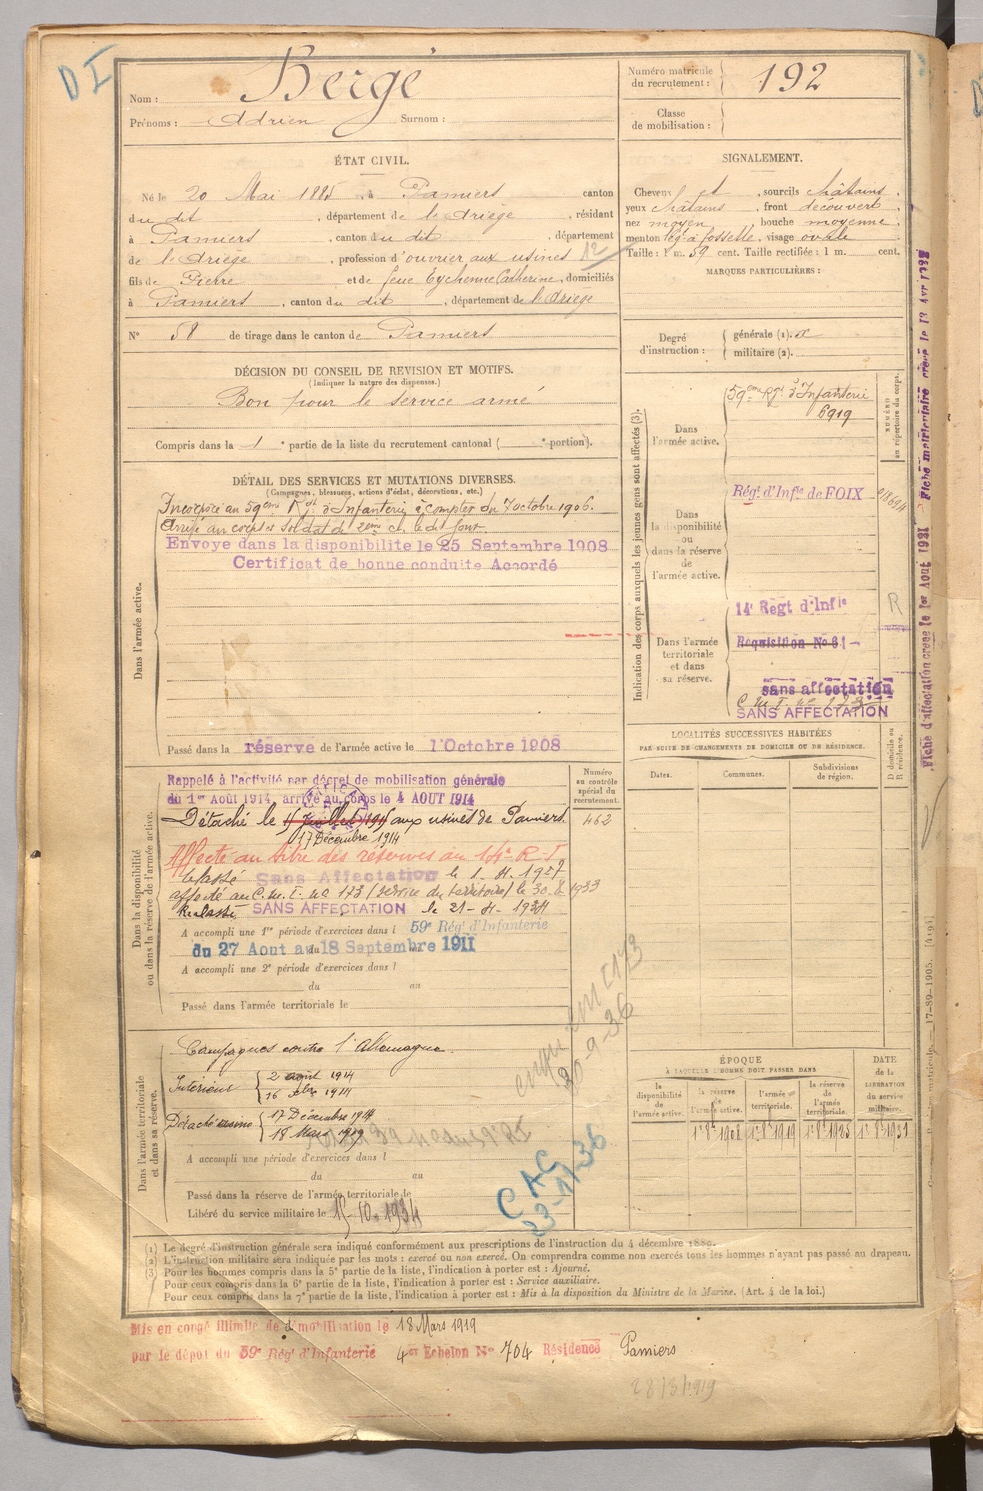 D I
Nom : Bergé
Prénoms : Adrien Surnom :
Numéro matricule du recrutement : 192
Classe de mobilisation :
ÉTAT CIVIL.
Né le 20 Mai 1885, à Pamiers canton
du dit, département de l'Ariège, résidant
à Pamiers, canton du dit, département
de l'Ariège, profession d'ouvrier aux usines 12
fils de Pierre et de feue Eychenne Catherine, domiciliés
à Pamiers, canton du dit, département de l'Ariège
N° 58 de tirage dans le canton de Pamiers
SIGNALEMENT.
Cheveux et, sourcils châtains,
yeux châtains, front découvert,
nez moyen, bouche moyenne,
menton lég. à fossette, visage ovale
Taille : 1 m. 59 cent. Taille rectifiée : 1 m. cent.
MARQUES PARTICULIÈRES :
Degré d'instruction : générale (1).
militaire (2).
DÉCISION DU CONSEIL DE REVISION ET MOTIFS.
(Indiquer la nature des dispenses.)
Bon pour le service armé
Compris dans la 1e partie de la liste du recrutement cantonal ( e portion).
DÉTAIL DES SERVICES ET MUTATIONS DIVERSES.
(Campagnes, blessures, actions d'éclat, décorations, etc.)
Dans l'armée active.
Incorporé au 59eme Rgt d'Infanterie à compter du 7 octobre 1906.
Arrivé au corps et soldat de 2eme cl. le dit jour
Envoyé dans la disponibilité le 25 Septembre 1908
Certificat de bonne conduite Accordé
Passé dans la réserve de l'armée active le 1 Octobre 1908
Indication des corps auxquels les jeunes gens sont affectés (3).
NUMÉRO au répertoire du corps.
Dans l'armée active.
59eme Rgt d'Infanterie
6919
Dans la disponibilité ou dans la réserve de l'armée active.
Régt d'Infie de FOIX
Dans l'armée territoriale et dans sa réserve.
14e Regt d'Infie
R
Requisition No 81 -
sans affectation
C.M.I. no 173
SANS AFFECTATION
LOCALITÉS SUCCESSIVES HABITÉES
PAR SUITE DE CHANGEMENTS DE DOMICILE OU DE RÉSIDENCE.
Dates. Communes. Subdivisions de région. D domicile ou R résidence.
Dans la disponibilité ou dans la réserve de l'armée active.
Numéro au contrôle spécial du recrutement.
Rappelé à l'activité par décret de mobilisation générale
du 1er Août 1914, arrivé au corps le 4 AOUT 1914
Détaché le 15 Juillet 1915 aux usines de Pamiers. 462
17 Décembre 1914
Affecté au titre des réserves au 14e R.I
Classé Sans Affectation le 1.4.1927
affecté au C.M.I. no 173 (service du territoire) le 30.8.1933
Reclassé SANS AFFECTATION le 21-4-1934
A accompli une 1re période d'exercices dans l 59e Régt d'Infanterie
du 27 Aout au 18 Septembre 1911
A accompli une 2e période d'exercices dans l
du au
Passé dans l'armée territoriale le
Dans l'armée territoriale et dans sa réserve.
Campagnes contre l'Allemagne
Intérieur { 2 août 1914
16 xbre 1914
Détaché usine { 17 Décembre 1914
18 Mars 1919
A accompli une période d'exercices dans l
du au
Passé dans la réserve de l'armée territoriale le
Libéré du service militaire le 15-10-1934
30-9-36
CAC
23-11-36
ÉPOQUE
À LAQUELLE L'HOMME DOIT PASSER DANS
la disponibilité de l'armée active. la réserve de l'armée active. l'armée territoriale. la réserve de l'armée territoriale.
DATE de la LIBÉRATION du service militaire.
1er 8bre 1908 1er 8bre 1919 1er 8bre 1925 1er 8bre 1931
(1) Le degré d'instruction générale sera indiqué conformément aux prescriptions de l'instruction du 4 décembre 1889.
(2) L'instruction militaire sera indiquée par les mots : exercé ou non exercé. On comprendra comme non exercés tous les hommes n'ayant pas passé au drapeau.
(3) Pour les hommes compris dans la 5e partie de la liste, l'indication à porter est : Ajourné.
Pour ceux compris dans la 6e partie de la liste, l'indication à porter est : Service auxiliaire.
Pour ceux compris dans la 7e partie de la liste, l'indication à porter est : Mis à la disposition du Ministre de la Marine. (Art. 4 de la loi.)
Mis en congé illimité de démobilisation le 18 Mars 1919
par le dépôt du 59e Régt d'Infanterie 4er Echelon No 704 Résidence Pamiers
28/3/1919
Fiche d'affectation créée le 1er Aout 1931 Fiche matriculaire créée le 13 Avr
17-89-1905.